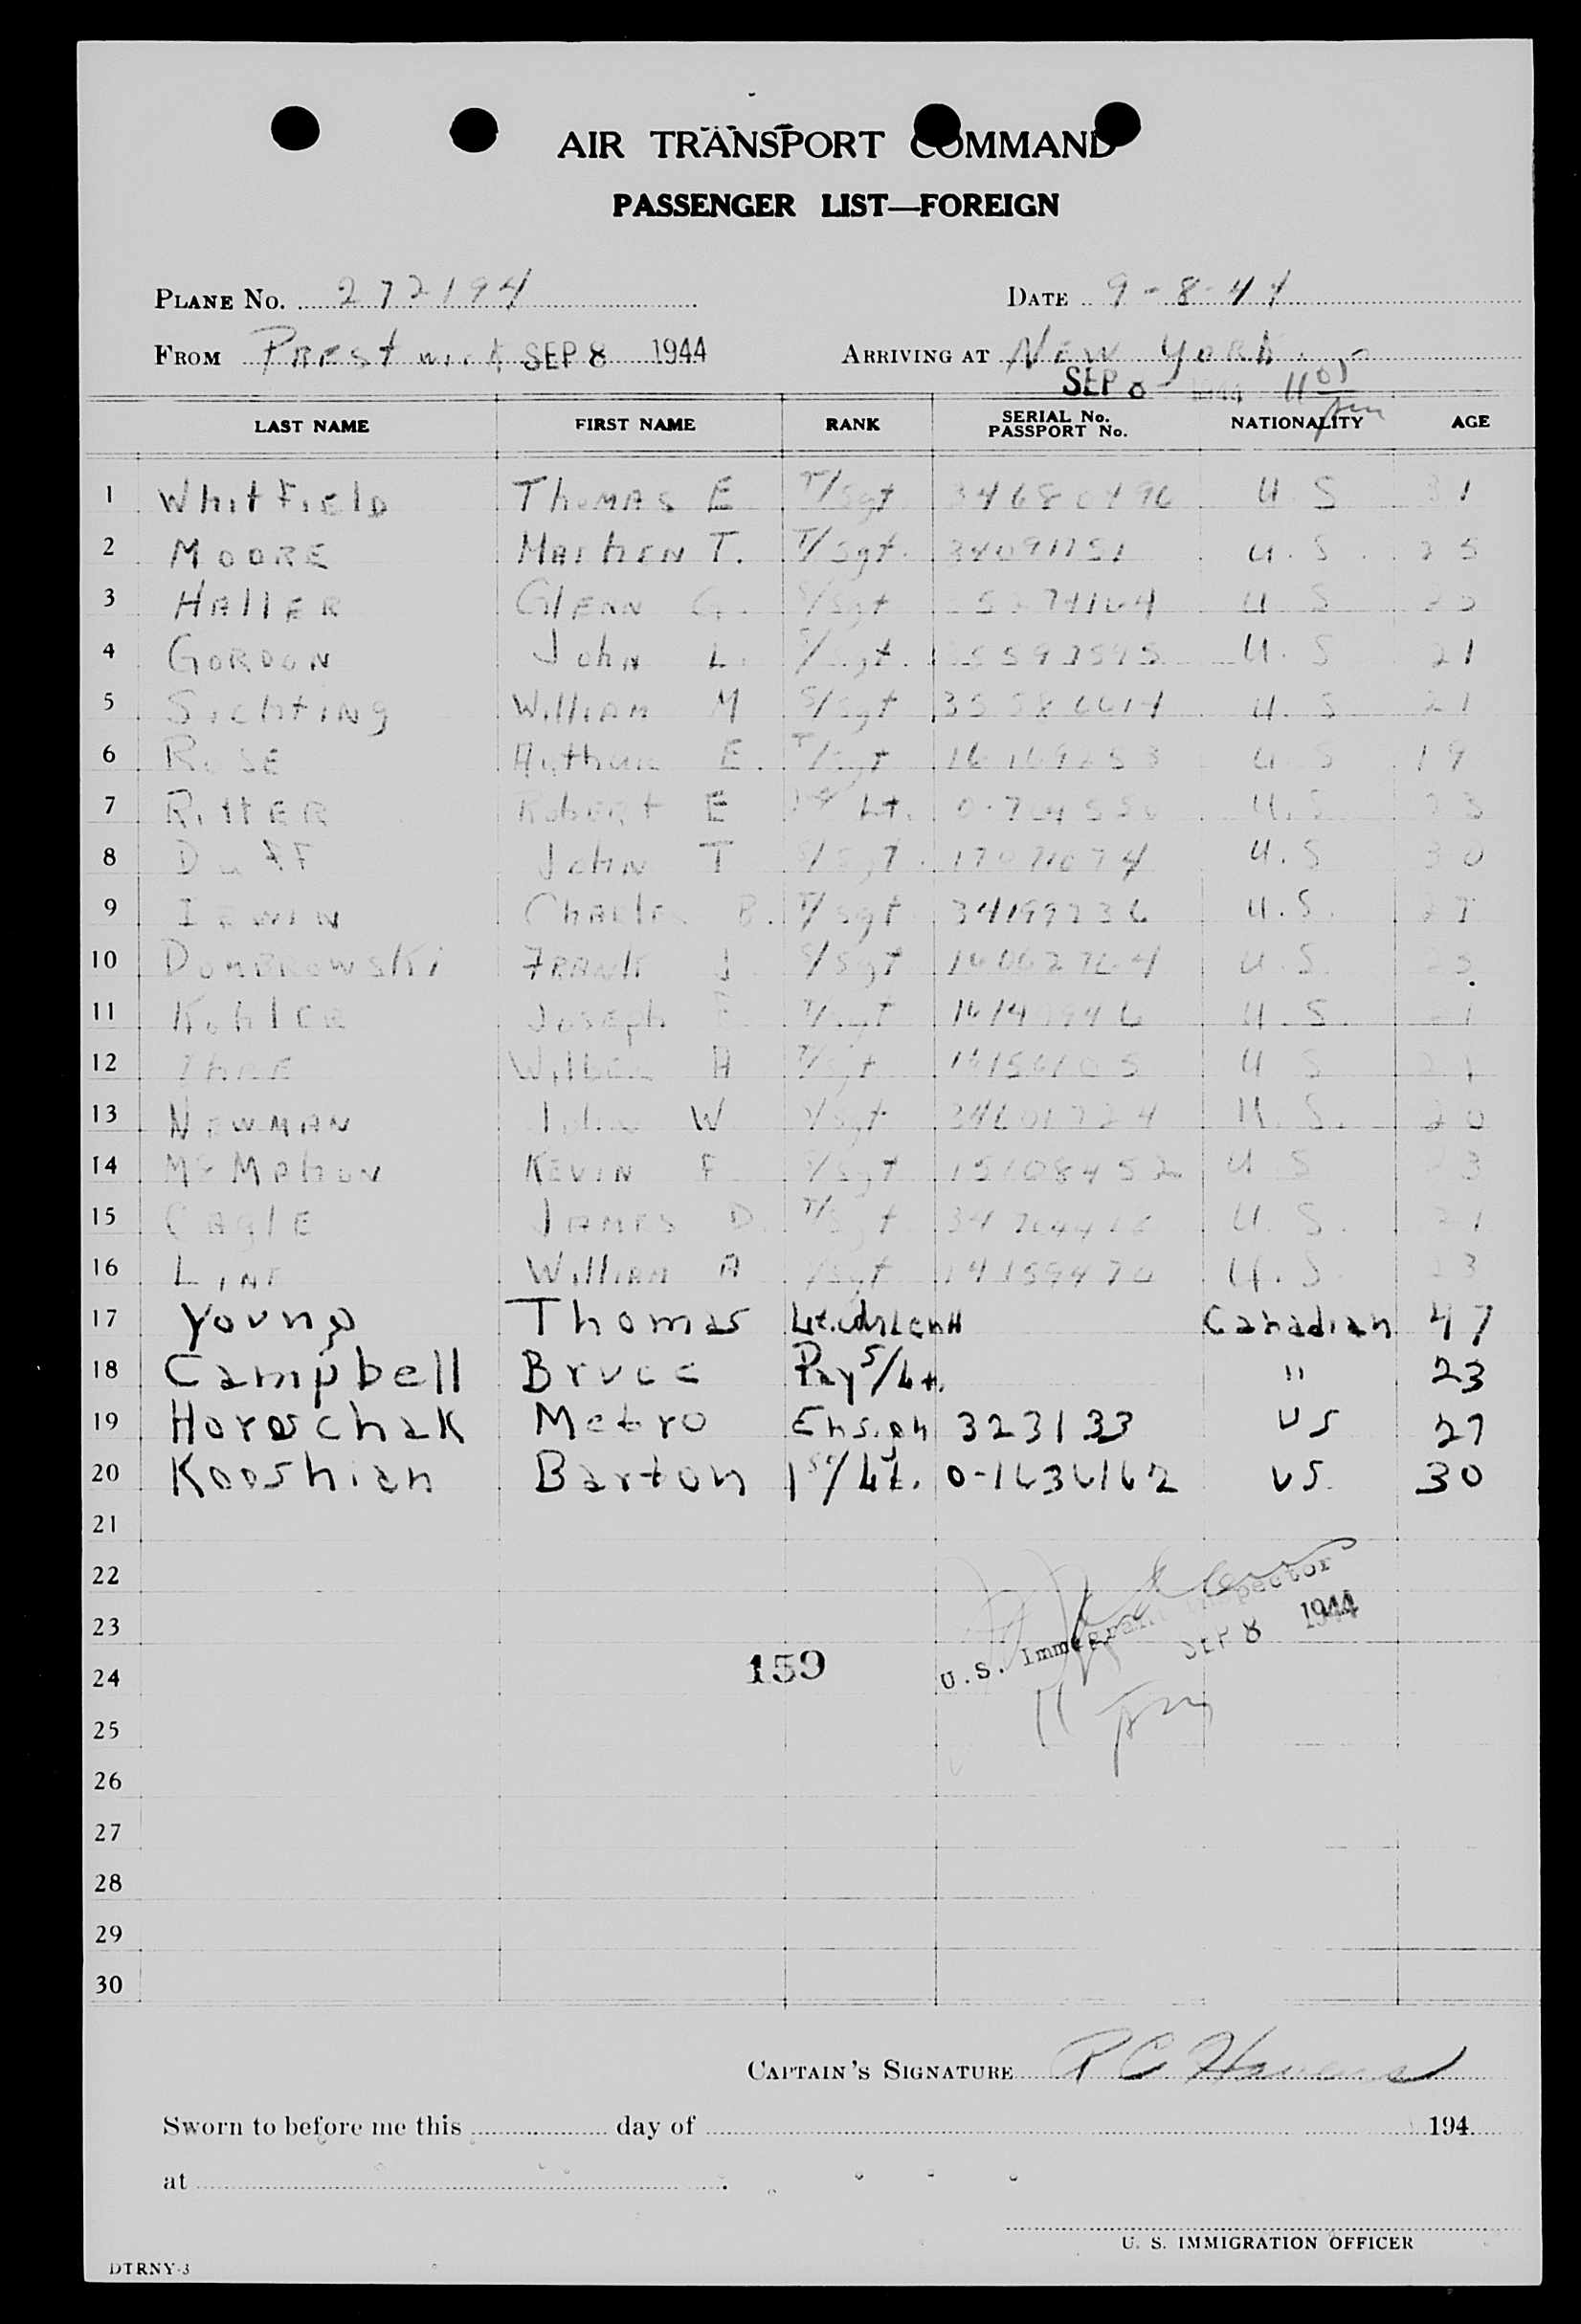 AIR TRANSPORT COMMAND
PASSENGER LIST—FOREIGN
PLANE No. 272194 DATE 9-8-44
FROM PREstwick SEP 8 1944 ARRIVING AT NEW YORK
SEP 8 1944 11 05 pm
LAST NAME FIRST NAME RANK SERIAL No. PASSPORT No. NATIONALITY AGE
1 WhitFiElD ThoMAS E T/Sgt 34680496 U S 31
2 MOORE T. T/Sgt. 34091751 U.S. 25
3 HAllER GlENN G. S/Sgt U S
4 GORDON John L. S/Sgt. U.S 21
5 SichtiNg WilliAM M S/Sgt 35586614 U.S 21
6 RoSE E. T/Sgt U S 19
7 RittER RobERt E Lt. U.S 23
8 DuFF John T S/Sgt. 17071074 U.S 30
9 IRWIN ChARles B. T/Sgt 34199736 U.S. 27
10 DOMBROWSKi FRANK J S/Sgt 16062764 U.S.
11 KohlER Joseph T/Sgt U.S. 21
12 H T/Sgt U S
13 NEWMAN John W S/Sgt 34601724 U.S. 20
14 McMAhON KEVIN F S/Sgt 15108452 U S 23
15 CAglE JAMES D. T/Sgt U.S. 21
16 LINE WilliAM A S/Sgt 14159470 U.S 23
17 Young Thomas Canadian 47
18 Campbell Bruce Pay S/Lt. " 23
19 Horoschak Metro Ensign 323133 US 27
20 Kooshian Barton 1st/Lt. 0-1636162 US. 30
21
22
23
U.S. Immigrant Inspector
SEP 8 1944
159
24
11 pm
25
26
27
28
29
30
CAPTAIN'S SIGNATURE R C
Sworn to before me this day of 194
at
U. S. IMMIGRATION OFFICER
DTRNY-3